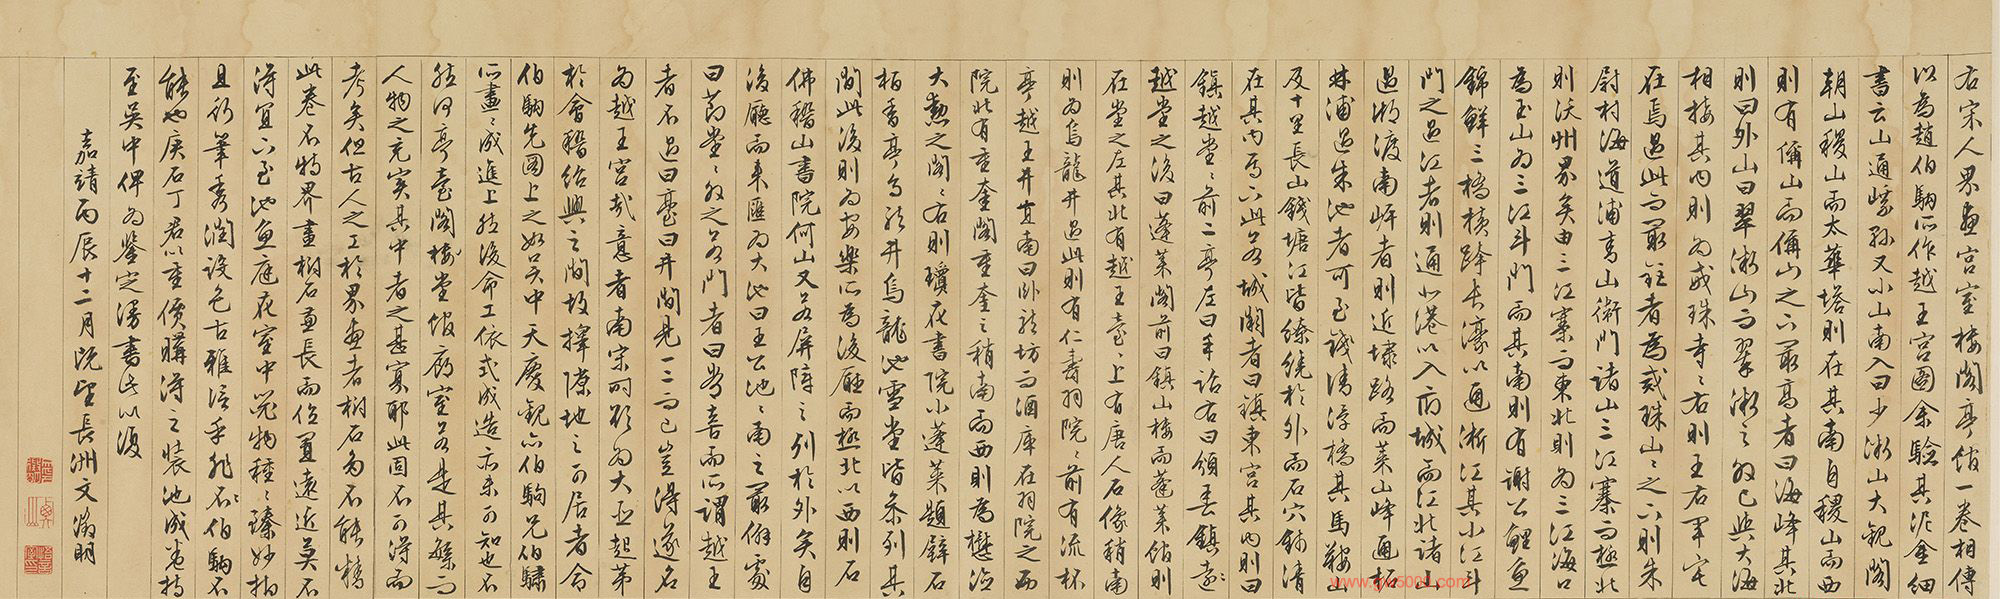 右宋人界畫宮室樓閣亭館一卷相傳
以為趙伯駒所作越王宮圖余驗其泥金細
書云山通嵊孫又小山南入曰少湫山大觀閣
朝山稷山而太華塔則在其南自稷山而西
則有偁山而偁山之下最高者曰海峰其北
則曰外山曰翠湫山而翠湫之外已與大海
相接其內則為戒珠寺寺右則王右軍宅
在焉過此而最近者為戒珠山山之下則朱
尉村海道浦青山衛門諸山三江寨而極北
則沃州界矣由三江寨而東北則為三江海口
為玉山為三江斗門而其南則有謝公鯉魚
錦鮮三橋橫跨長濠以通浙江其小江斗
門之過江者則通小港以入府城而江北諸山
過湘渡南岸者則近埭路而萊山峰通柘
林浦過朱池者可至錢清浮橋其馬鞍山
及十里長山錢塘江皆繚繞於外而石穴錢清
在其內焉下此為城闕者曰鎮東宮其內則曰
鎮越堂堂前二亭左曰年詒右曰頒春鎮
越堂之後曰蓬萊閣前曰鎮山樓而蓬萊館則
在堂之左其北有越王臺臺上有唐人石像稍南
則為烏龍井過此則有仁壽羽院院前有流杯
亭越王井宜南曰臥龍坊而酒庫在羽院之西
院北有重奎閣重奎之稍南而西則為懋治
大懃之閣閣右則瓊花書院小蓬萊題壁石
栢香亭而龍井烏龍池雪堂皆參列其
間此後則為安樂所為後廳而極北以西則石
佛稽山書院何山又為屏障之列於外矣自
後廳而東匯為大池曰王公池池南之最僻處
曰莭堂堂外之為門者曰觀音而所謂越王
者不過曰臺曰井間見一二而已豈得遂名
為越王宮哉意者南宋時欲為大起第
於會稽紹興之間故擇隙地之可居者命
伯駒先圖上之如吳中天慶觀亦伯駒兄伯驌
所畫畫成進上然後命工依式成造亦未可知也不
然何亭臺閣樓堂館廊室若是其繁而
人物之充實其中者之甚寡耶此固不可得而
考矣但古人之工於界畫者樹石多不能精
此卷不特界畫樹石並長而位置遠近莫不
得宜下至池魚庭花室中玩物種種臻妙拍
且祈筆秀潤設色古雅信乎非石伯駒不
能也庚石丁君以重價購得之裝池成卷持
至吳中俾為鑒定漫書此以復
嘉靖丙辰十二月既望長洲文徵明
www.gw5000.com